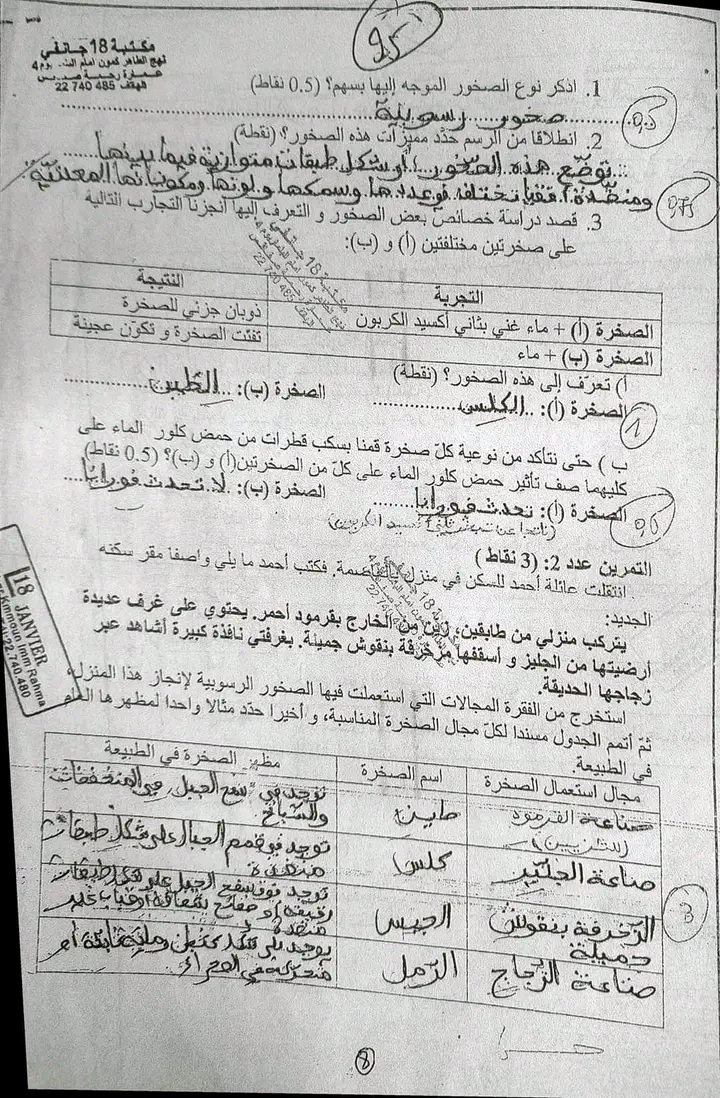 مكتبة 18 جانفي
نهج الطاهر كمون امام
عمارة رحمة صفاقس
الهاتف 485 740 22
9,5
1. اذكر نوع الصخور الموجه إليها بسهم؟ (0.5 نقاط)
صخور رسوبية
0,5
2. انطلاقا من الرسم حدّد مميزات هذه الصخور؟ (نقطة)
توضّع هذه الصّخور على شكل طبقات متوازية فيما بينها
ومنضّدة أفقيا تختلف في عددها وسمكها ولونها ومكوناتها المعدنيّة
0,75
3. قصد دراسة خصائص بعض الصخور و التعرف إليها أنجزنا التجارب التالية
على صخرتين مختلفتين (أ) و (ب):
التجربة النتيجة
الصخرة (أ) + ماء غني بثاني أكسيد الكربون ذوبان جزئي للصخرة
الصخرة (ب) + ماء تفتت الصخرة و تكوّن عجينة
أ) تعرّف إلى هذه الصخور؟ (نقطة)
الصخرة (أ): الكلس الصخرة (ب): الطين
1
ب) حتى نتأكد من نوعية كلّ صخرة قمنا بسكب قطرات من حمض كلور الماء على
كليهما صف تأثير حمض كلور الماء على كلّ من الصخرتين(أ) و (ب)؟ (0.5 نقاط)
الصخرة (أ): تحدث فورانا الصخرة (ب): لا تحدث فورانا
(ناتجا عن ثاني أكسيد الكربون)
التمرين عدد 2: (3 نقاط)
انتقلت عائلة أحمد للسكن في منزل بالعاصمة. فكتب أحمد ما يلي واصفا مقر سكنه
الجديد:
يتركب منزلي من طابقين، زيّن من الخارج بقرمود أحمر. يحتوي على غرف عديدة
أرضيتها من الجليز و أسقفها مزخرفة بنقوش جميلة. بغرفتي نافذة كبيرة أشاهد عبر
زجاجها الحديقة.
استخرج من الفقرة المجالات التي استعملت فيها الصخور الرسوبية لإنجاز هذا المنزل،
ثمّ أتمم الجدول مسندا لكلّ مجال الصخرة المناسبة، و أخيرا حدّد مثالا واحدا لمظهرها العام
في الطبيعة.
مجال استعمال الصخرة اسم الصخرة مظهر الصخرة في الطبيعة
صناعة القرمود طين توجد في سفح الجبل، في المنخفضات
والسّباخ
صناعة الجليز كلس توجد في قمم الجبال على شكل طبقات
منضدة
الزخرفة بنقوش جميلة الجبس توجد فوق سفح الجبل على شكل طبقات
رقيقة أو صفائح شفافة
صناعة الزّجاج الرّمل يوجد على شكل كثبان رملية ثابتة أو
متحركة في الصحراء
3
18 JANVIER
Imm Rahma
8